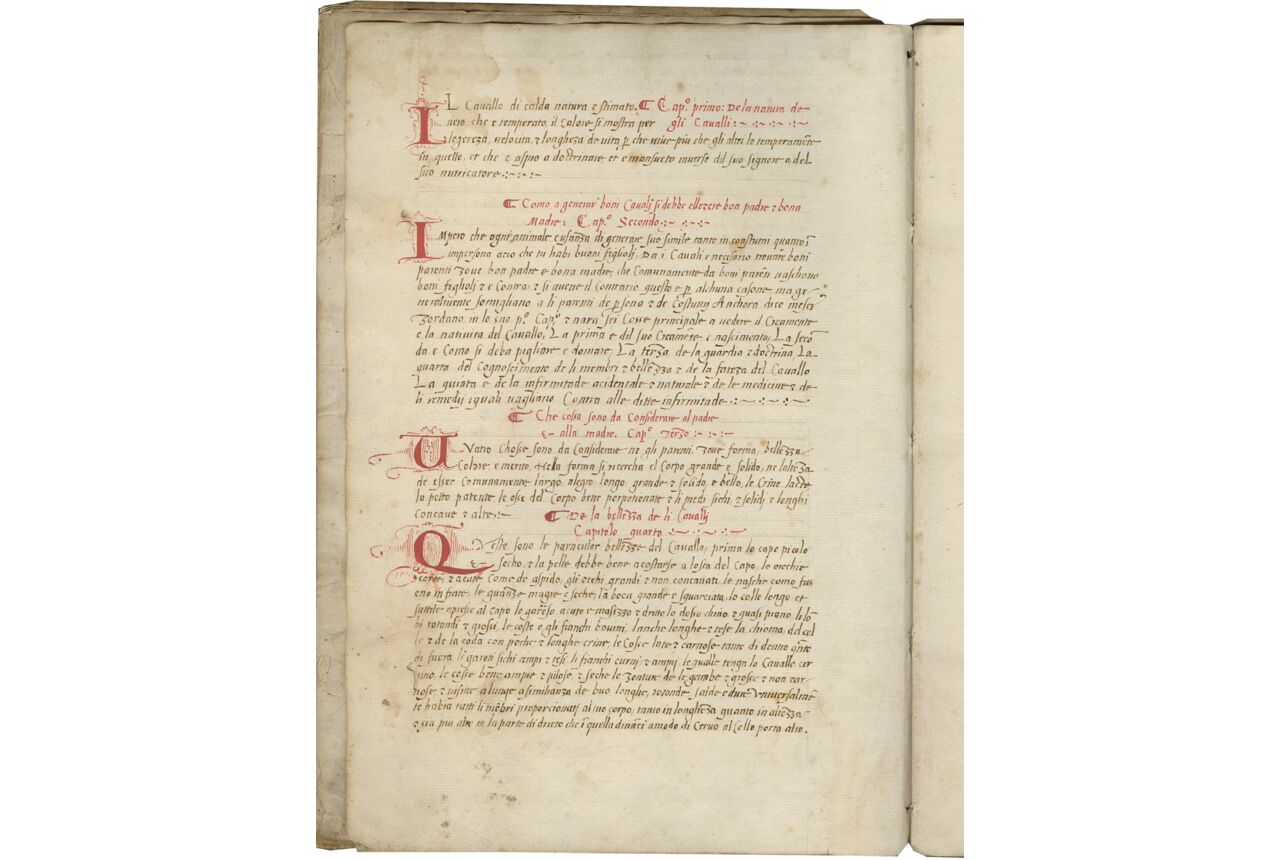 IL Cauallo di calda natura e stimato. ¶ Cap.º primo: De la natura de
uero che e temperato, il Calore si mostra per gli Caualli:~
legereza, velocita, & longheza de vita, p che viue piu che gli altri lo temperamẽte
in quello, et che e aspro a doctrinare et e mansueto inuerso dil suo signore o del
suo nutricatore
¶ Como a generar boni Cauali si debbe ellezere bon padre & bona
Madre: Cap.º Secondo
IMpero che ogni animale e usanza di generare suo simile tanto in constumi quanto ĩ
impersona acio che tu habi buoni figlioli, Da i Cauali e necesario trouare boni
parenti Zoue bon padre e bona madre, che Comunamente da boni parẽti naschono
boni figlioli & e Contra: & si auene il Contrario questo e p alchuna casone ma ge
neralmente somigliano a li parenti de psona & de Costumi Anchora dice meser
Zordano, in lo suo p.º Cap.º & nara sei Cosse principale a vedere il Creamente
e la natiuita del Cauallo, La prima e dil suo Creamẽte e nascimento, La secõ
da e Como si deba pigliare e domare, La terza de la guardia & doctrina, La
quarta del Cognoscimento de li membri & bellezza & de la fateza del Cauallo
La quinta e de la infirmitade acidentale & naturale & de le medicine & de
li remedij i quali uagliano Contra alle ditte infirmitade
¶ Che cossa sono da Considerare al padre
& alla madre. Cap.º Terzo
UVatro Chosse sono da Considerare ne gli parenti Zoue forma, bellezza
Colore e merito, Nella forma si ricercha el Corpo grande e solido, ne
de esser Comunamente largo, alegro longo grande & solido, e bello, le Crine late
lo petto patente le osse del Corpo bene porporionate & li piedi sichi, & solidj & longhi
Concaue & alte
¶ De la bellezza de li Caualli
Capitolo quarto
QVeste sono le particular bellezze del Cauallo, prima lo capo picolo
& secho, & la pelle debbe bene acostarse a lossa del Capo, le orechie
corte, & acute Come de aspido, gli occhi grandi & non concauati, le nasche como fus
eno infiate, le guanze magre e seche, la boca grande e sguarciata, lo collo longo et
suttile apresso al capo lo gareso acuto e masizzo & dritto lo dosso chino & quasi piano li lõ
bi rotondi & grossi, le coste e gli fianchi bouini, lanche longhe & tese la chioma, del col
lo & de la coda con poche & longhe crine, le Cosse late & carnose tante di dentro quãte
di fuora, li gareti sichi ampi & tesi li fianchi curui & ampij, le qualle tenga lo Cauallo cer
uino, le coste bene ampie & pilose & seche le zonture de le gambe & grosse & non car
nose & uisine a lunge a similianza de buo longhe, rotonde salde e dure Vniuersalmẽ
te habia tutti li mẽbri proporcionatj al suo corpo, tanto in longhezza quanto in altezza
& sia piu alte in la parte di drieto che ĩ quella dinãci a modo di Ceruo al Collo porta alto.